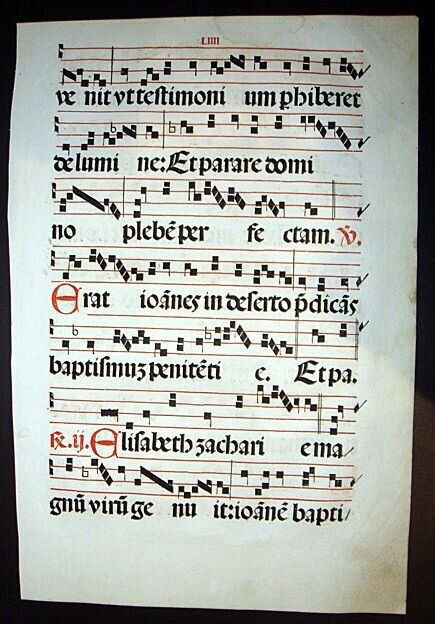 LIIII
ve nit vt testimoni um phiberet
de lumi ne: Et parare domi
no plebē per fe ctam. ℣.
Erat ioānes in deserto p̄dicās
baptismuz penitēti e. Et pa.
℟. ij. Elisabeth zachari e ma
gnū virū ge nu it: ioānē bapti